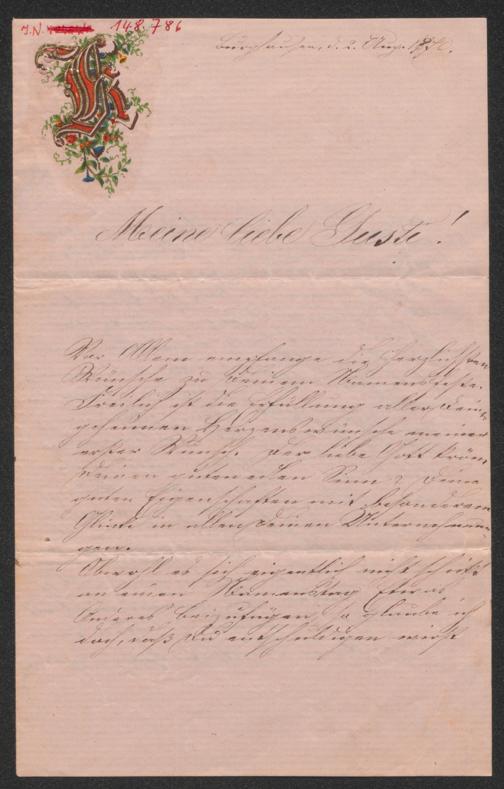 J.N. 148.786
Burghausen, d. 2. Aug. 18
Meine liebe Guste!
Vor Allem empfange die herzlichsten
Wünsche zu Deinem Namensfeste.
Freilich ist die Erfüllung aller Deiner
geheimen Herzenswünsche meiner
erster Wunsch. Der liebe Gott kröne
Deinen guten edlen Sinn & Deine
guten Eigenschaften mit besonderem
Glücke in allen Deinen Unternehmun-
gen.
Obwohl es sich eigentlich nicht schickt
an einem Namenstag Etwas
Anderes beizufügen so glaube ich
doch, daß Du entschuldigen wirst